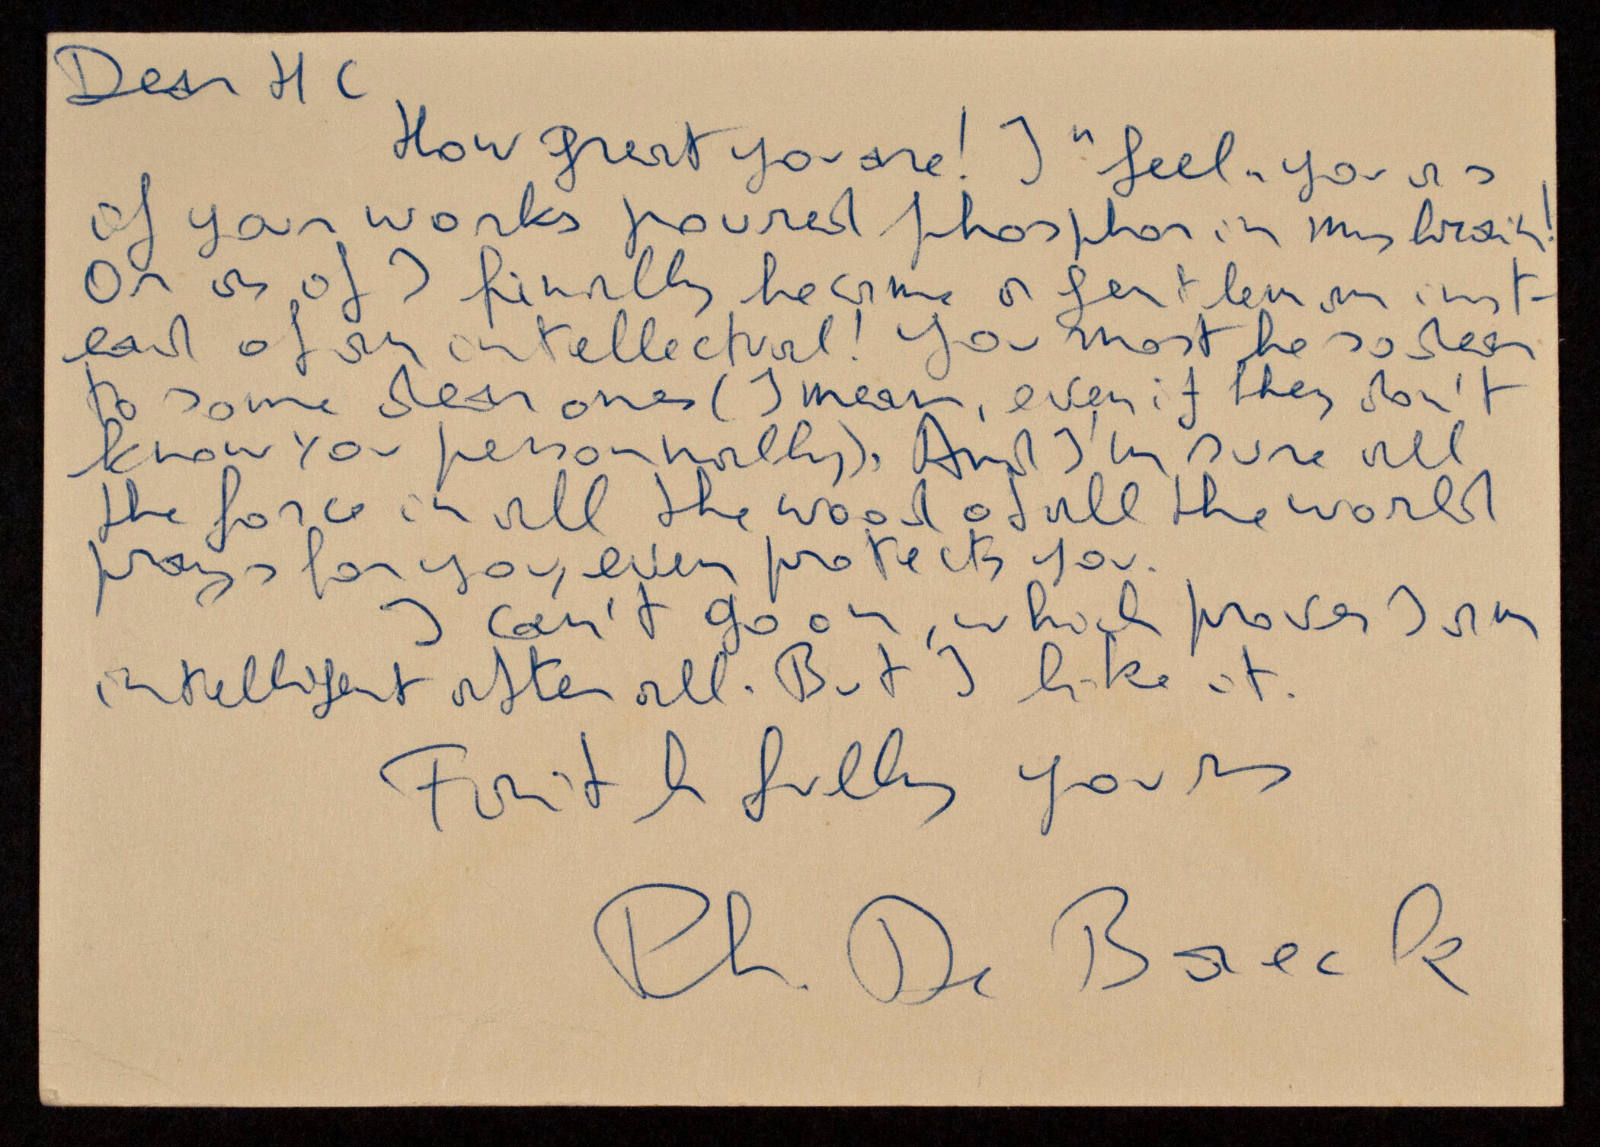 Dear HC
How great you are! I "feel" you as
if your works poured phosphor in my brain!
Or as if I finally became a gentleman inst-
ead of an intellectual! You most be so dear
to some dear ones (I mean, even if they don't
know you personnally). And I'm sure all
the force in all the wood of all the world
prays for you, even protects you.
I can't go on, which proves I am
intelligent after all. But I like it.
Faithfully yours
Ph. De Baeck